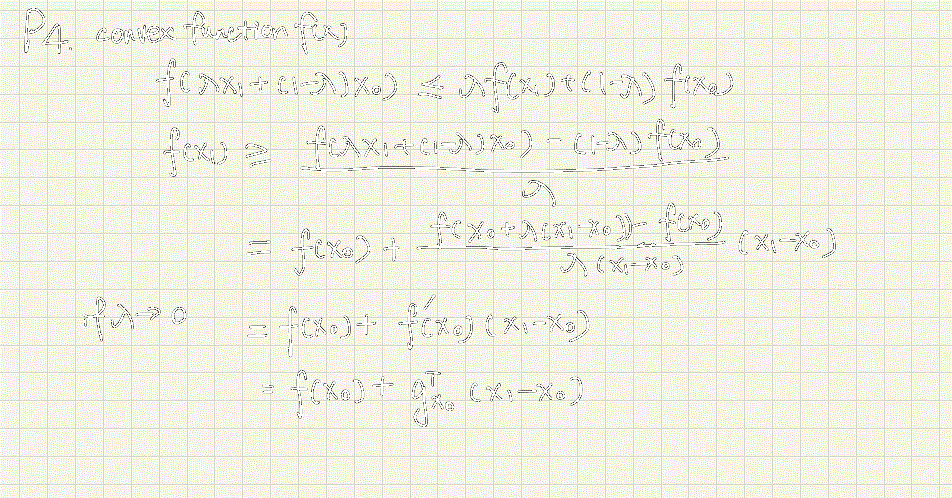 P4. convex function f(x)
f(λx₁+(1-λ)x₀) ≤ λf(x₁)+(1-λ) f(x₀)
f(x₁) ≥ \frac{f(λx₁+(1-λ)x₀) - (1-λ) f(x₀)}{λ}
= f(x₀) + \frac{f(x₀+λ(x₁-x₀)) - f(x₀)}{λ(x₁-x₀)} (x₁-x₀)
if λ→0 = f(x₀) + f'(x₀) (x₁-x₀)
= f(x₀) + g^T_{x₀} (x₁-x₀)